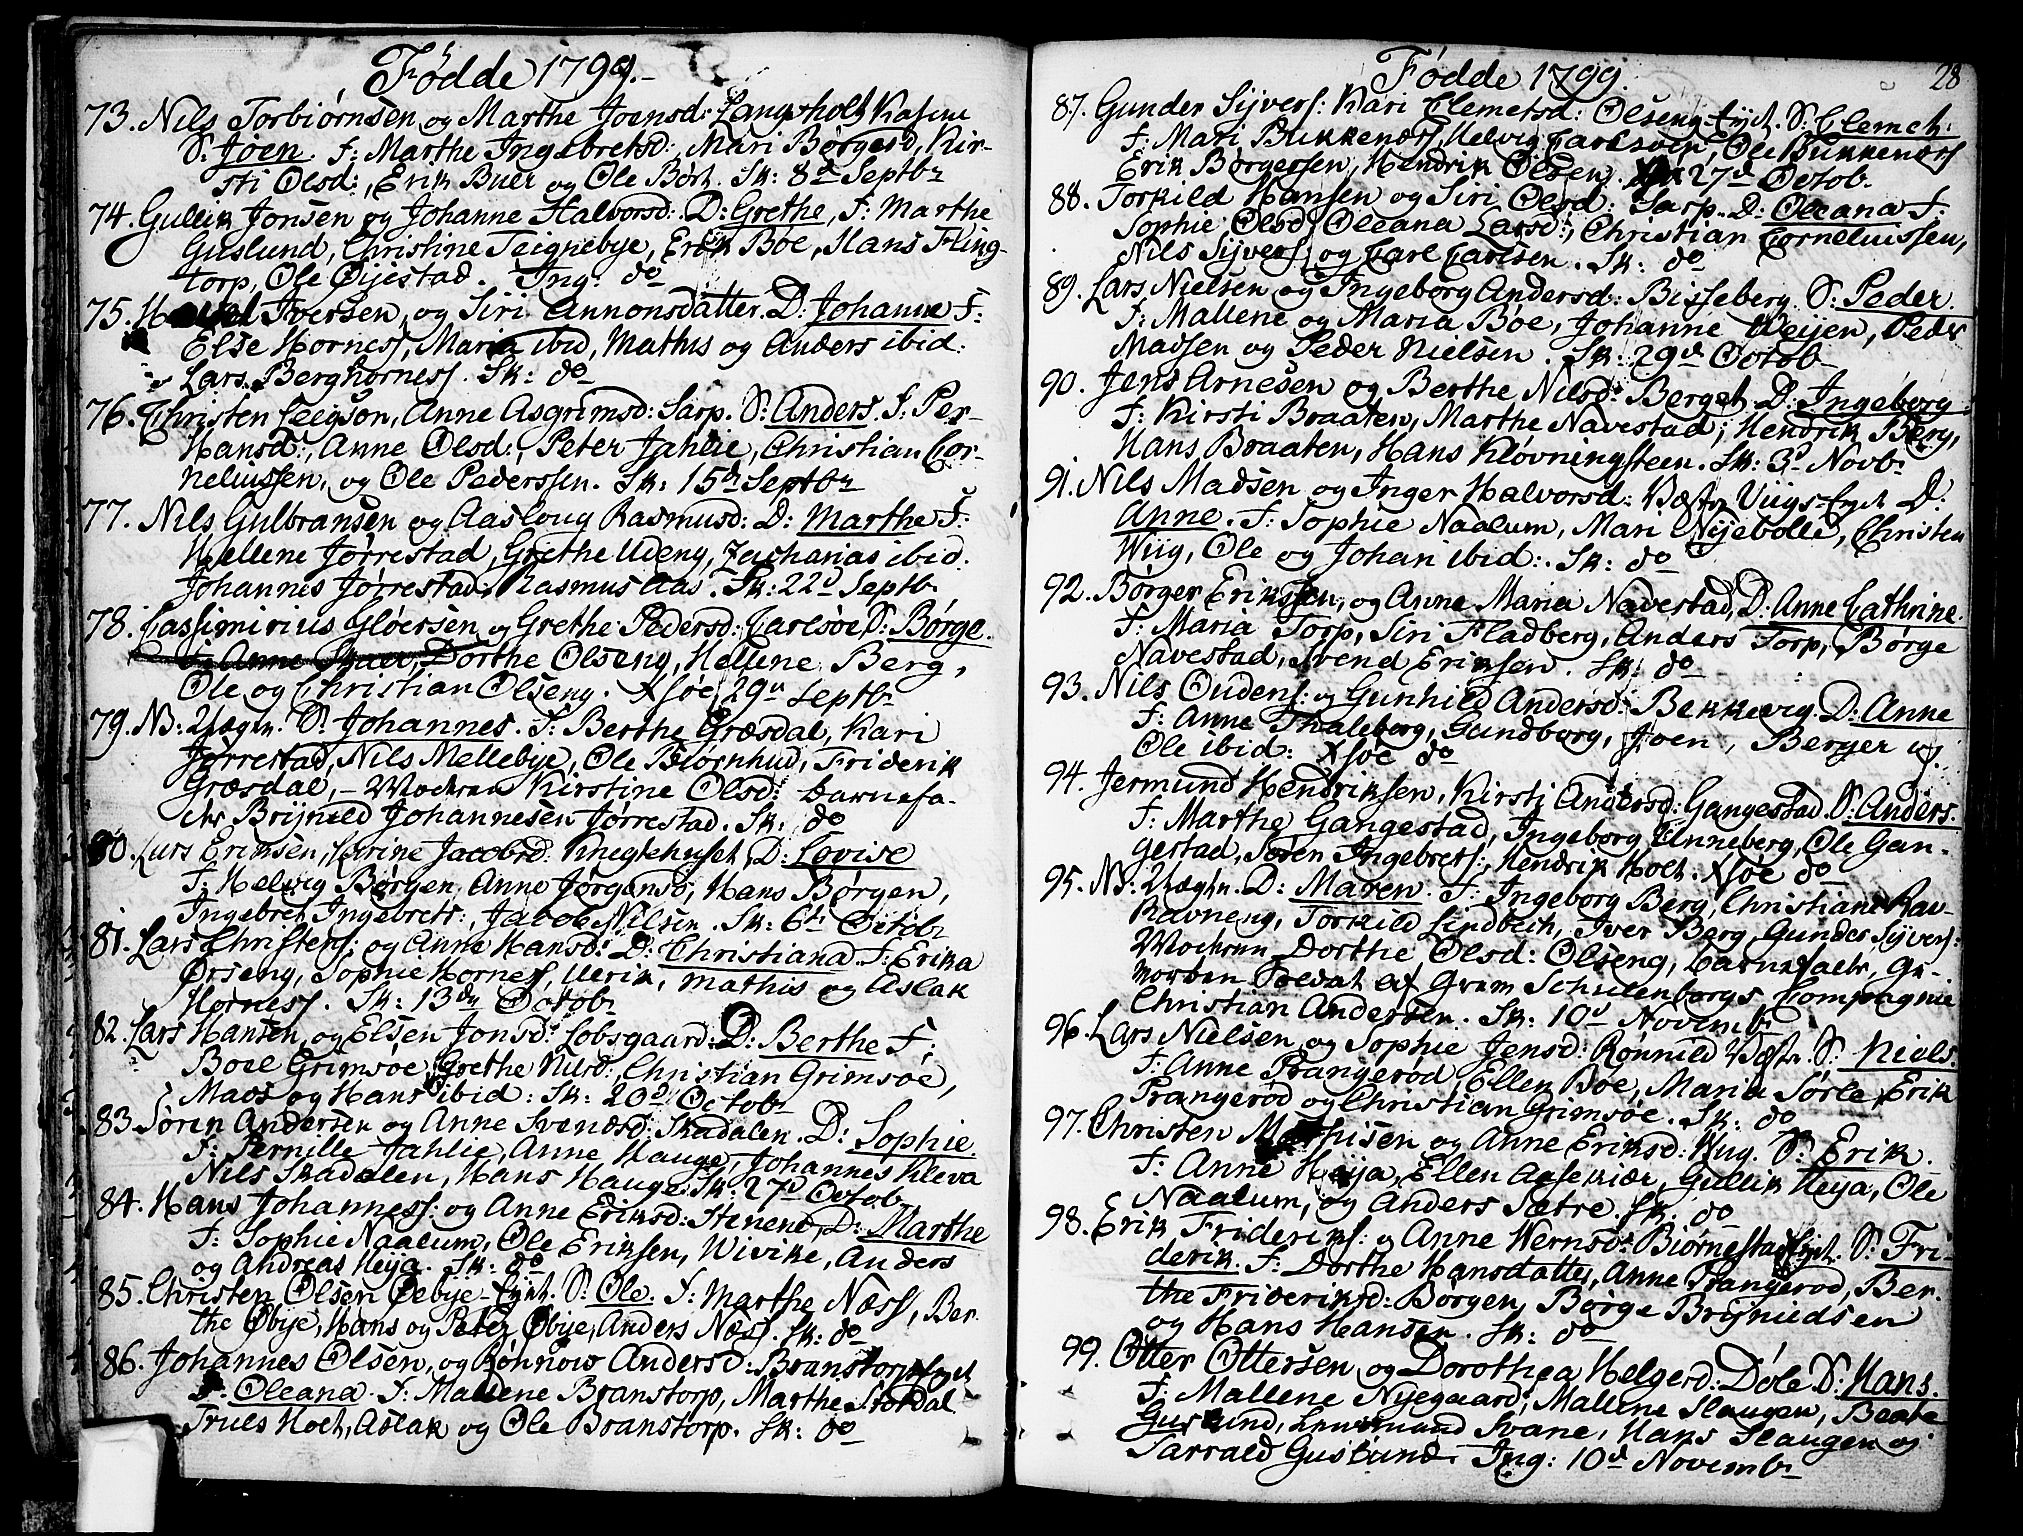 Födde 1799.
73. Nils Torbiørnsen og Marthe Joensd: Langsholt Kasen
S: Joen. F: Marthe Ingebretsd:, Mari Børgersd, Kir-
sti Olsd:, Erik Buer og Ole Børt. Sk: 8d Septbr
74. Gullik Jonsen og Johanne Halvorsd: D: Grethe, F: Marthe
Guslund, Christine Teignebye, Erik Böe, Hans Fling-
torp, Ole Øijestad. Ing: do
75. Iversen, og Siri Annonsdatter. D: Johanne F:
Else Horness, Maria ibid, Mathis og Anders ibid:
Lars Berghorness. Sk: do
76. Christen Leegson, Anne Asgrimsd: Sarp. S: Anders. F: Per-
Hansd:, Anne Olsd:, Peter Jahlie, Christian Cor-
neliussen, og Ole Pederssen. Sk: 15de Septbr
77. Nils Gulbransen og Aasloug Rasmusd: D: Marthe F:
Hellene Jørrestad, Grethe Udeng, Zacharias ibid.
Johannes Jørrestad, Rasmus Aas. Sk: 22d Septbr
78. Cassimirius Gløersen og Grethe Pedersd: Carlsøe, S: Børge.
Dorthe Olseng, Hellene Berg,
Ole og Christian Olseng. Xsöe 29de Septbr
79. NB: Uægte. S: Johannes. F: Berthe Græsdal, Kari
Jørrestad, Nils Mellebye, Ole Biørnhud, Friderik
Græsdal, - Moderen Kirstine Olsd: Barnefa-
der Brijnild Johannesen Jørrestad. Sk: do
80. Lars Eriksen, Karine Jacobsd: Knegtehuset, D: Lovise
F: Helvig Børgen, Anne Jørgensd, Hans Børgen,
Ingebret Ingebrets:, Jacob Nilsen. Sk: 6te Octobr
81. Lars Christens: og Anne Hansd: D: Christiana. F: Erika
Ørseng, Sophie Horness, Ulerik, Mathis og Aslak
Horness. Sk: 13de Octobr
82. Lars Hansen, og Elsen Jonsd: Lobsgaard: D: Berthe F:
Boel Grimsöe, Grethe Nilsd: Christian Grimsöe,
Mads og Hans ibid: Sk: 20d Octobr
83. Søren Andersen og Anne Svensd: Skadalen. D: Sophie.
F: Pernille Jahlie, Anne Hauge, Johannes Kleva
Nils Skadalen, Hans Hauge. Sk: 27d Octob
84. Hans Johanness: og Anne Eriksd: Stenene, D: Marthe
F: Sophie Naalum, Ole Eriksen, Wivike, Anders
og Andreas Heija. Sk: do
85. Christen Olsen Oebije-Eijet. S: Ole. F: Marthe Næss, Ber-
the Øbije, Hans og Peter Øbije, Anders Næss. Sk: do
86. Johannes Olsen, og Rønnow Andersd: Branstorps Eijet
D: Oleana. F: Mallene Branstorp, Marthe Stordal
Truls Holt, Aslak og Ole Branstorp. Sk: do
Födde 1799.
28
87. Gunder Sijvers: Kari Clemetsd: Olseng-Eijet. S: Clemet.
F: Mari Bukkenæss, Helvig Carlsöen, Ole Bukkenæss
Erik Børgersen, Hendrik Olsen. 27d Octob.
88. Torkild Hansen og Siri Olsd: Sarp. D: Oleana F:
Sophie Olsd, Oleana Larsd:, Christian Corneliussen,
Nils Sijvers: og Carl Carlsen. Sk: do
89. Lars Nielsen og Ingeborg Andersd: Bisseberg. S: Peder
F: Mallene og Maria Böe, Johanne Weijen, Peder
Madsen og Peder Nielsen. Sk: 29d Octob
90. Jens Arnesen og Berthe Nilsd: Berget D: Ingeborg
F: Kirsti Braaten, Marthe Navestad, Hendrik Berg,
Hans Braaten, Hans Kløvningsteen. Sk: 3d Novbr
91. Nils Madsen og Inger Halvorsd: Væstre Viigs-Eijet D:
Anne. F: Sophie Naalum, Mari Nijebolle, Christen
Wiig, Ole og Johan ibid: Sk: do
92. Børger Eriksen, og Anne Maria Navestad, D: Anne Cathrine.
F: Maria Torp, Siri Fladberg, Anders Torp, Børge
Navestad, Svend Eriksen. Sk: do
93. Nils Oudens: og Gunhild Andersd: Bekkevig. D: Anne
F: Anne Thaleborg, Gundborg, Joen, Berger og
Ole ibid: Xsöe do
94. Jermund Hendriksen, Kirsti Andersd: Gangestad. S: Anders.
F: Marthe Gangestad, Ingeborg Enneberg, Ole Gan-
gestad, Søren Ingebrets:, Hendrik Holt. Xsöe do
95. NB: Uægte. D: Maren. F: Ingeborg Berg, Christiane Rav-
Ravneng, Torkild Lindbech, Iver Berg, Gunder Sijvers:
Moderen Dorthe Olsd: Olseng, Barnefader, Ge-
worben Soldat af Gram Schulenborgs Compagnie
Christian Andersen. Sk: 10d Novembr
96. Lars Nielsen og Sophie Jensd: Rønnild Væstre. S: Niels.
F: Anne Prangerød, Ellen Böe, Maria Sørle, Erik
Prangerød og Christian Grimsöe. Sk: do
97. Christen Mathisen og Anne Eriksd: Wiig. S: Erik.
F: Anne Heija, Ellen Aassekiær, Gullik Heija, Ole
Naalum, og Anders Sætre. Sk: do
98. Erik Frideriks: og Anne Wernsd: Biørnestad Eijet. S: Fri-
derik. F: Dorthe Hansdatter, Anne Prangerød, Ber-
the Frideriksd: Borgen, Børge Brijnildsen
og Hans Hansen. Sk: do
99. Otter Ottersen og Dorothea Helgesd: Döle. S: Hans.
F: Mallene Nijegaard, Mallene Haugen, Beate
Guslund, Svane, Hans Haugen og
Tarrald Guslund. Ing: 10d Novembr